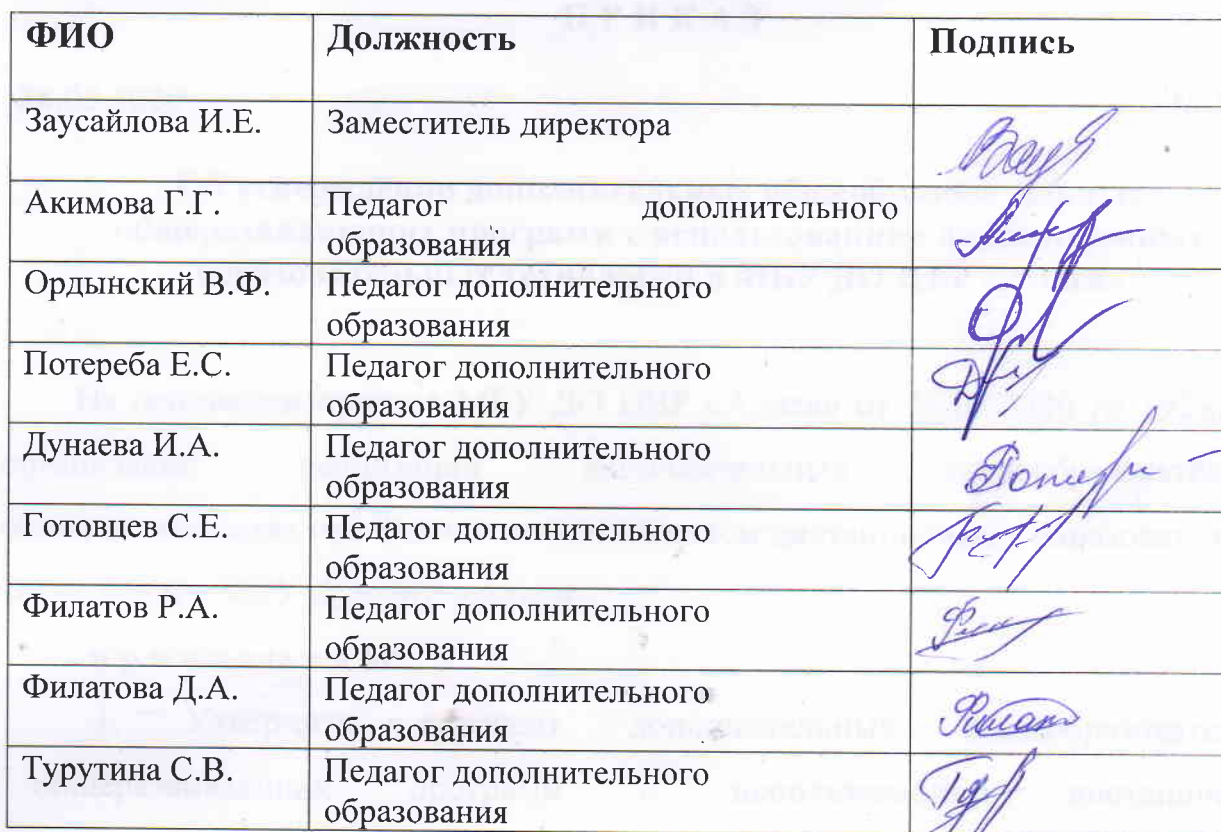 ФИО Должность Подпись
Заусайлова И.Е. Заместитель директора
Акимова Г.Г. Педагог дополнительного
образования
Ордынский В.Ф. Педагог дополнительного
образования
Потереба Е.С. Педагог дополнительного
образования
Дунаева И.А. Педагог дополнительного
образования
Готовцев С.Е. Педагог дополнительного
образования
Филатов Р.А. Педагог дополнительного
образования
Филатова Д.А. Педагог дополнительного
образования
Турутина С.В. Педагог дополнительного
образования